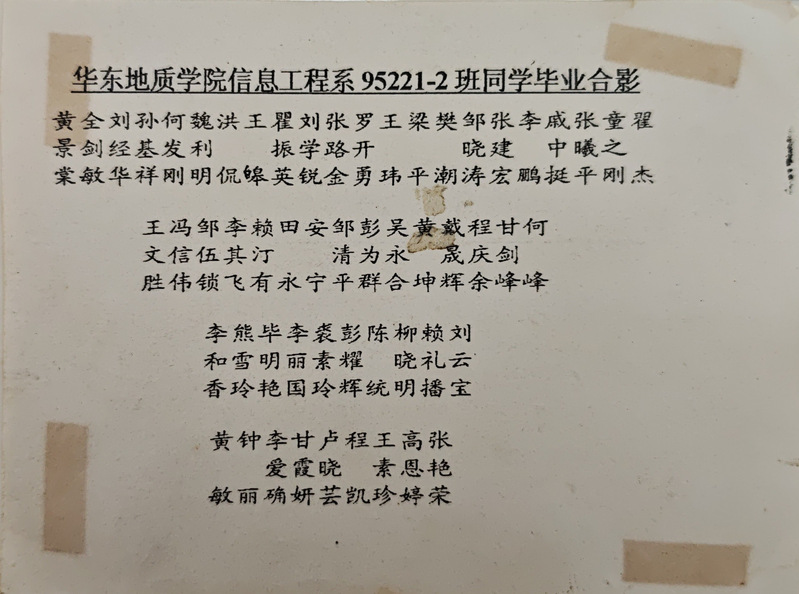 华东地质学院信息工程系95221-2班同学毕业合影
黄全刘孙何魏洪王瞿刘张罗王梁樊邹张李戚张童翟
景剑经基发利 振学路开 晓建 中曦之
棠敏华祥刚明侃皞英锐金勇玮平潮涛宏鹏挺平刚杰
王冯邹李赖田安邹彭吴黄戴程甘何
文信伍其汀 清为永 晟庆剑
胜伟锁飞有永宁平群合坤辉余峰峰
李熊毕李裘彭陈柳赖刘
和雪明丽素耀 晓礼云
香玲艳国玲辉统明播宝
黄钟李甘卢程王高张
爱霞晓 素恩艳
敏丽确妍芸凯珍婷荣